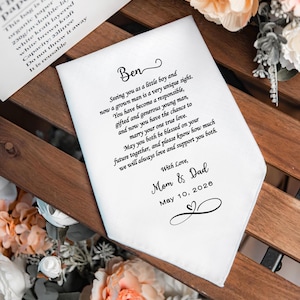 Ben
Seeing you as a little boy and
now a grown man is a very unique sight.
You have become a responsible,
gifted and generous young man,
and now you have the chance to
marry your one true love.
May you both be blessed on your
future together, and please know how much
we will always love and support you both.
With Love,
Mom & Dad
May 10, 2026